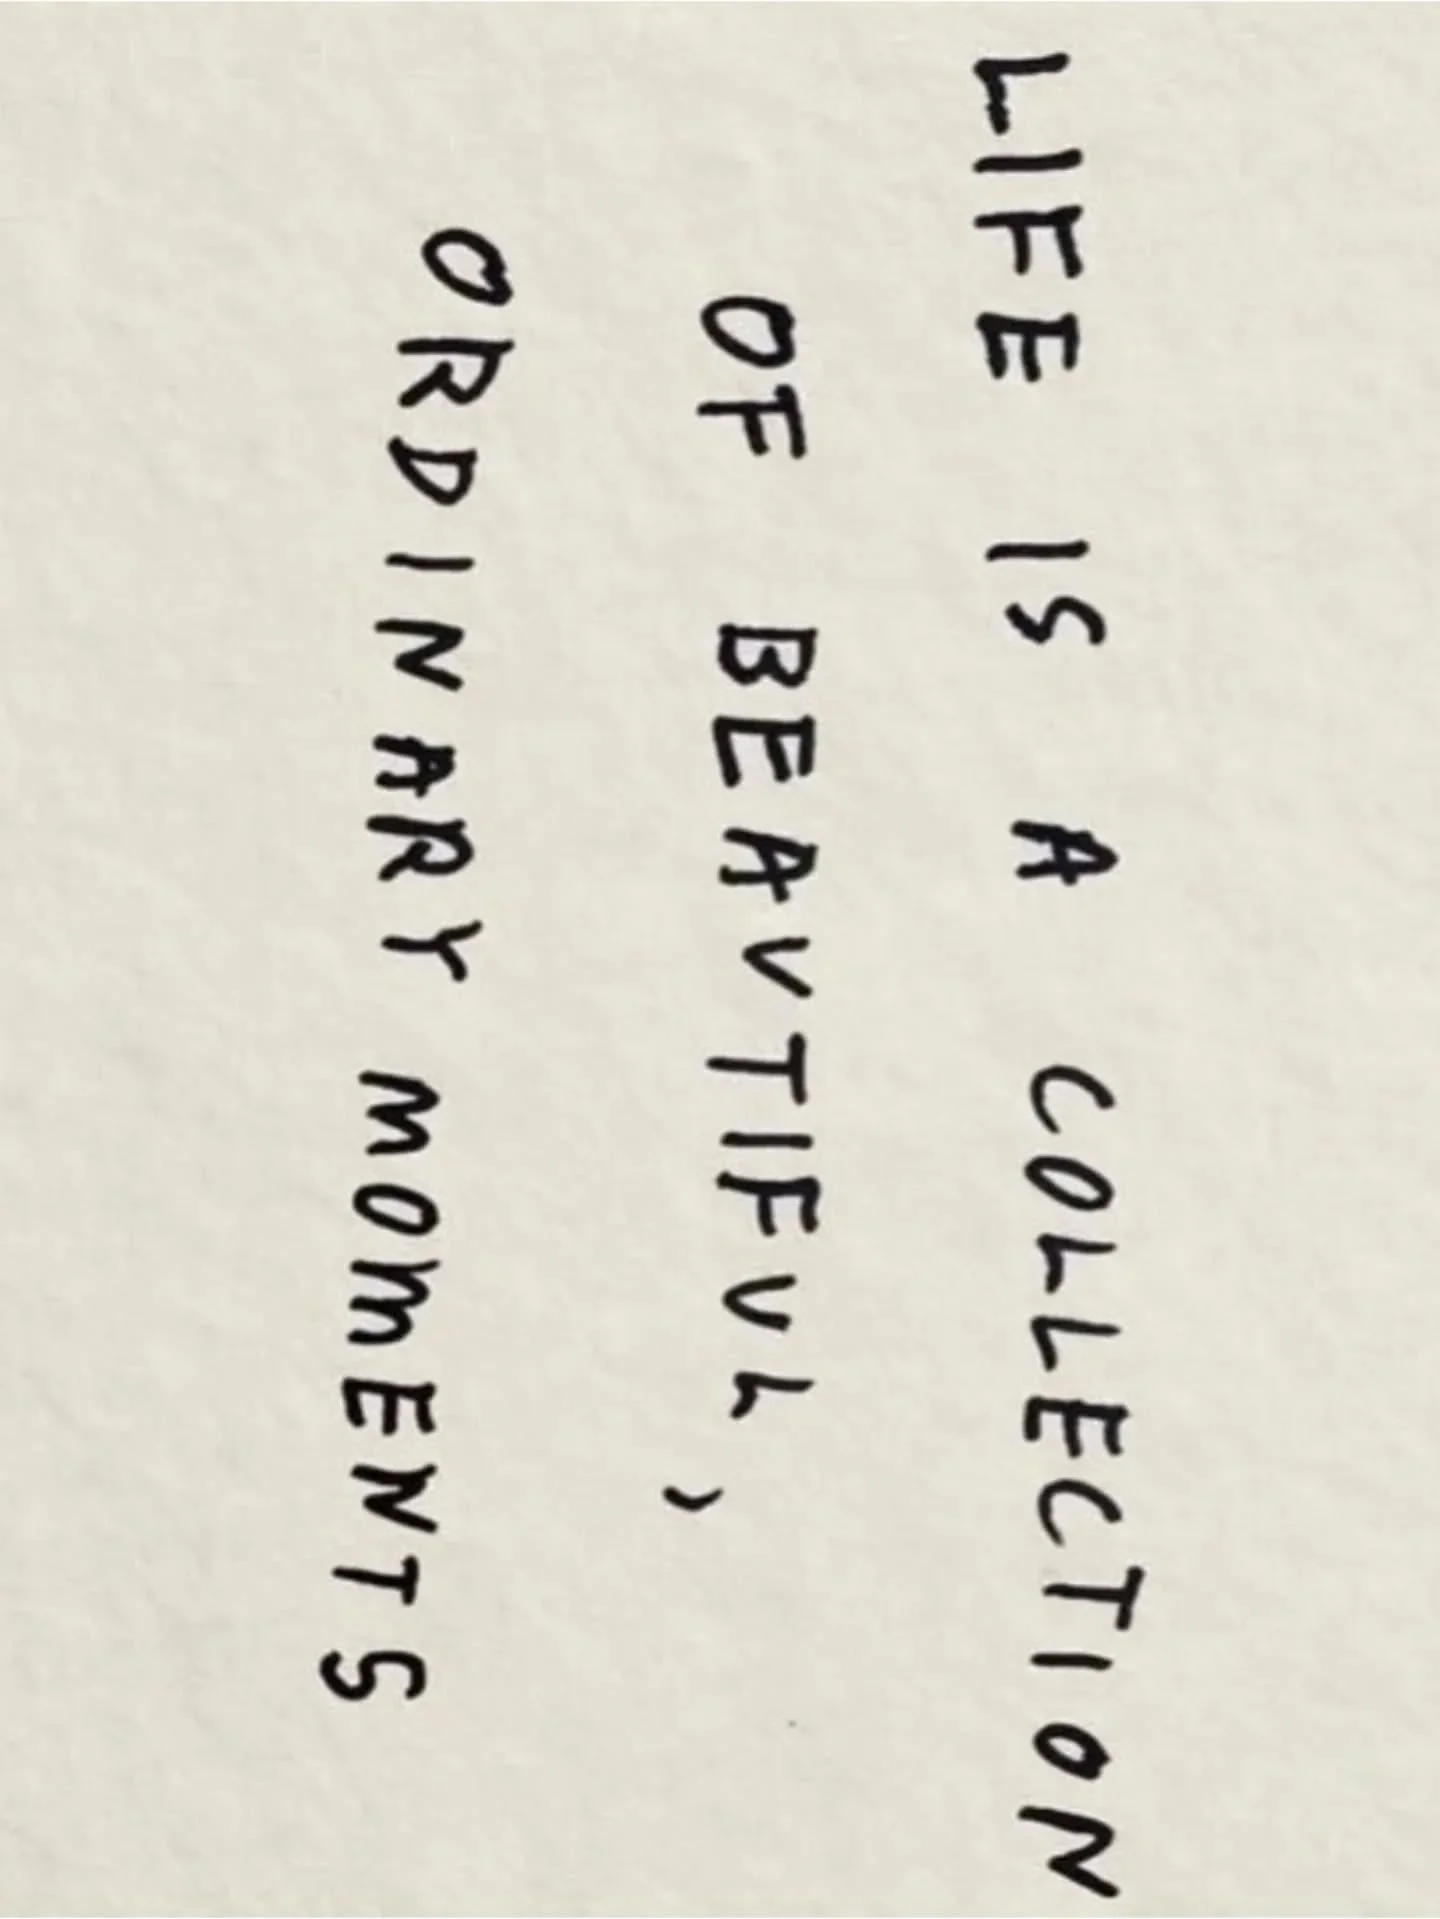 LIFE IS A COLLECTION
OF BEAUTIFUL,
ORDINARY MOMENTS